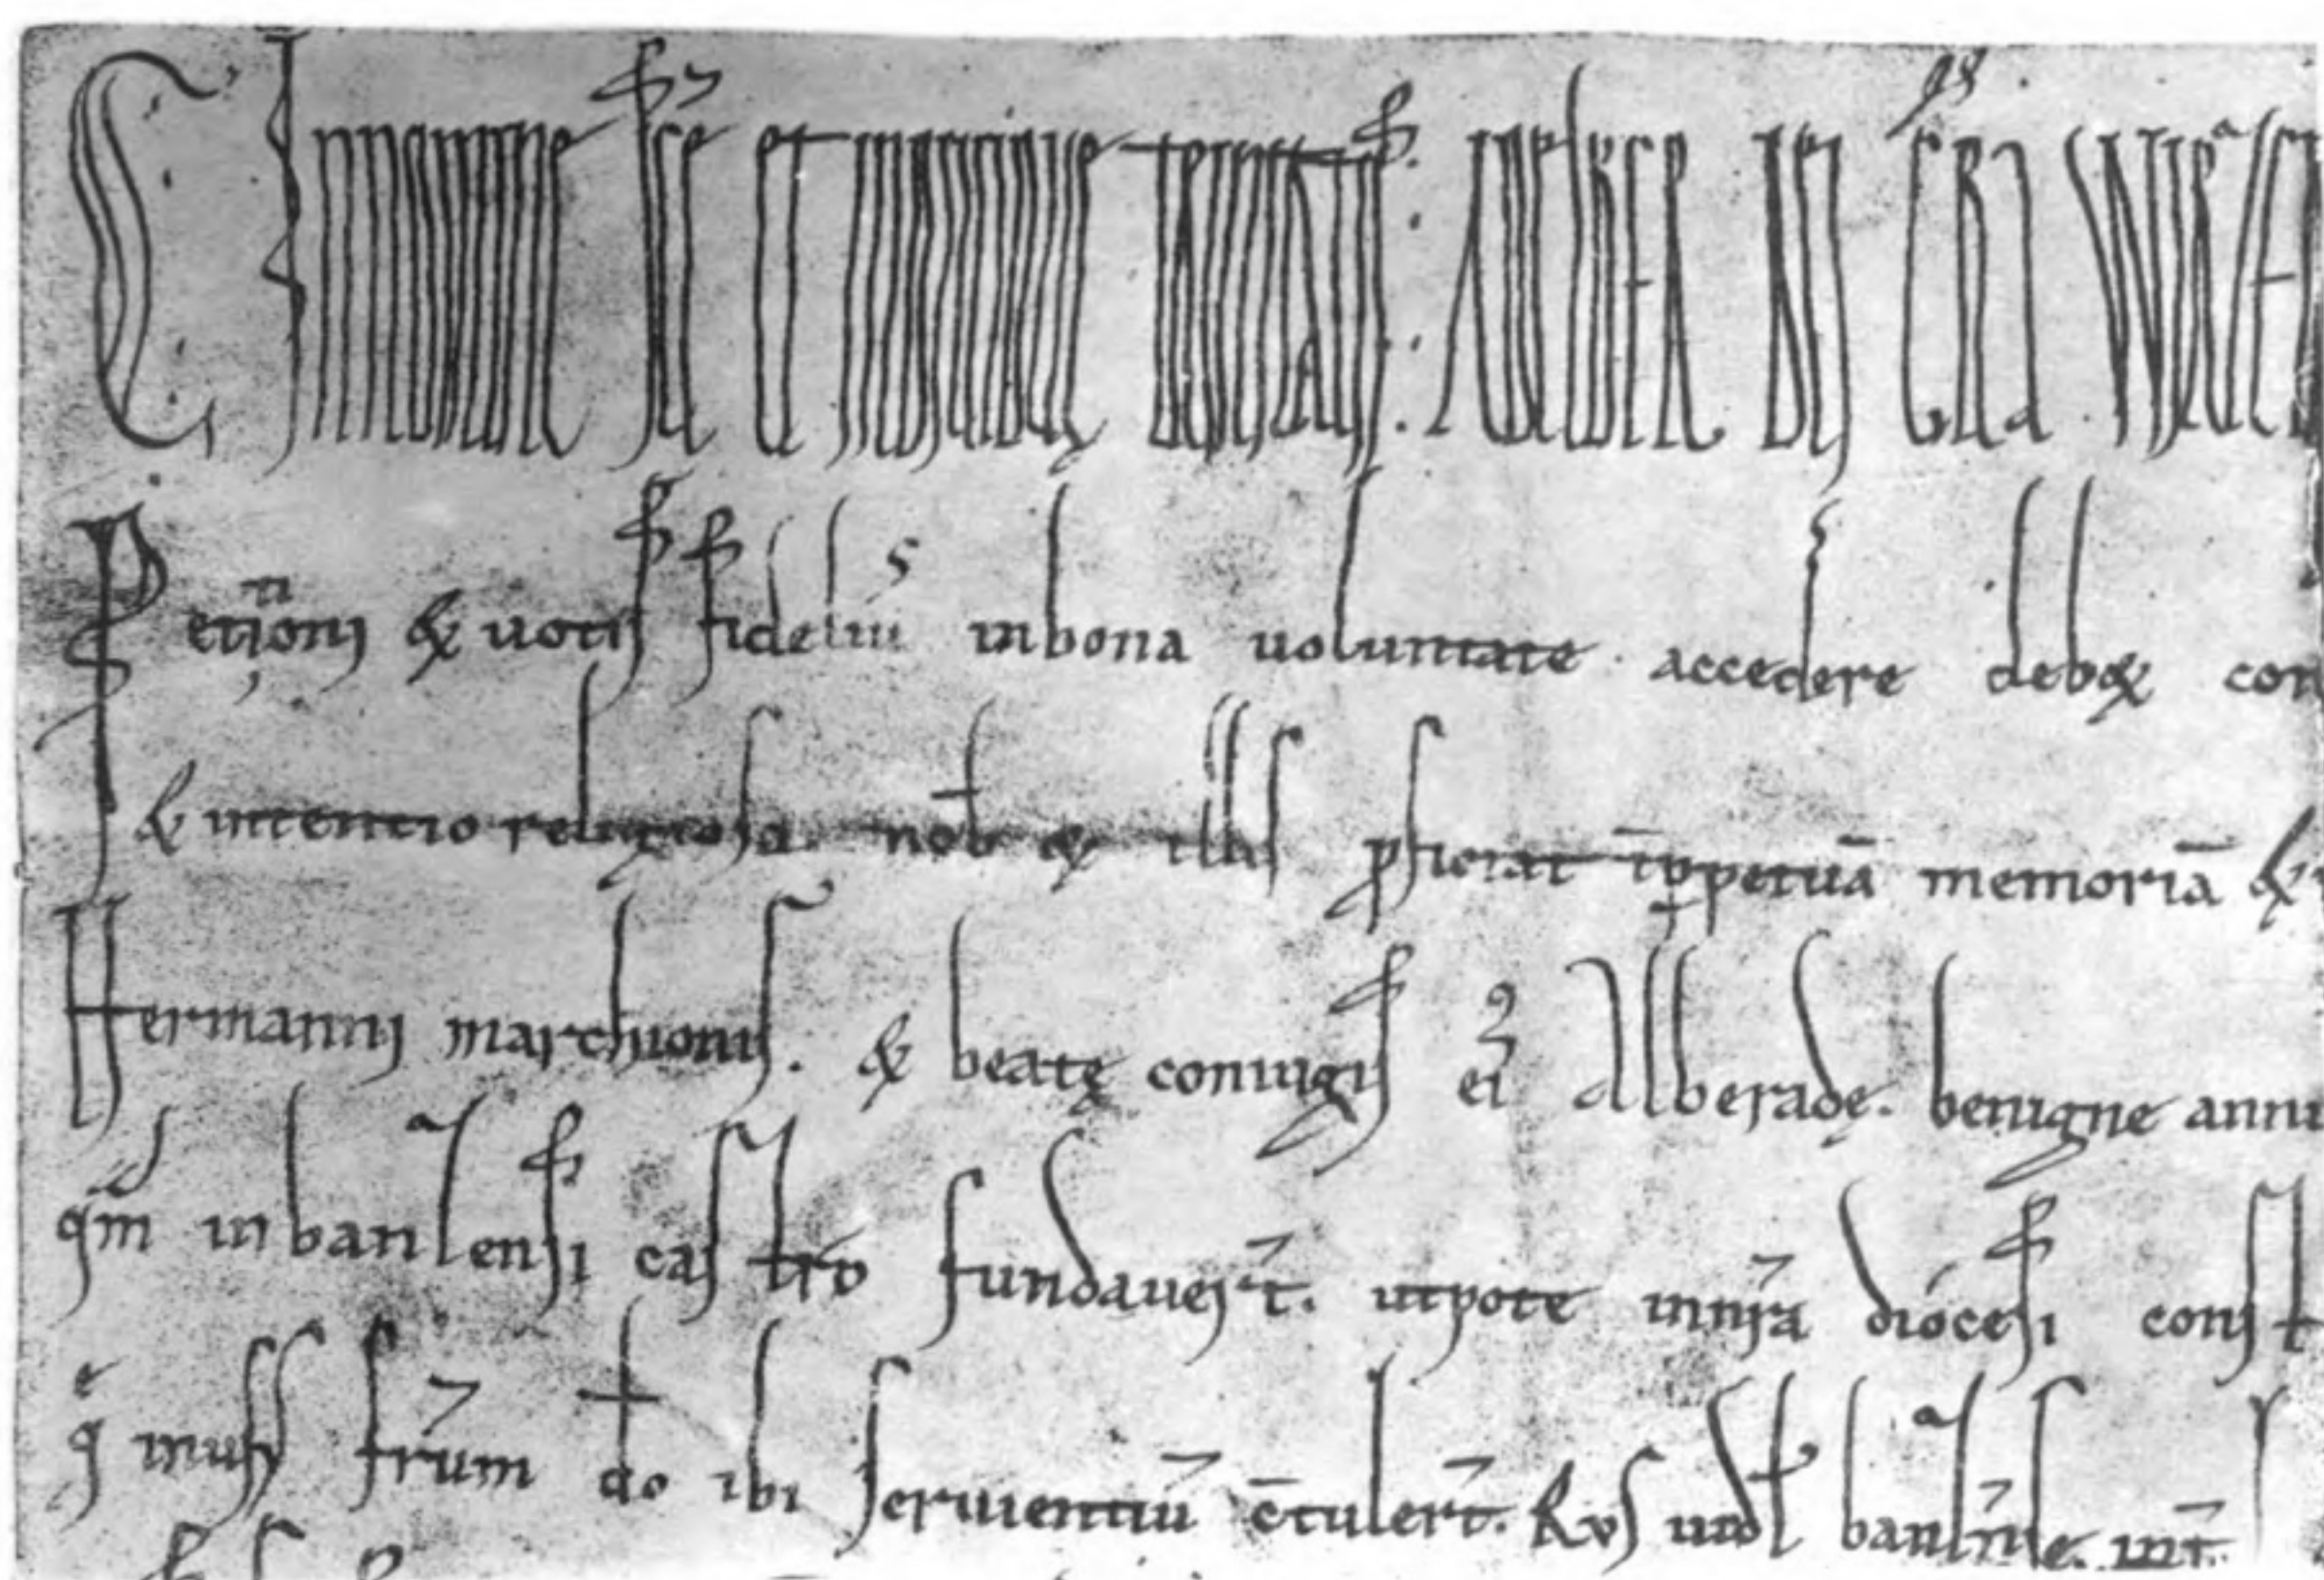 C In nomine sce et indiuidue trinitatis. Adelber dei gra Wirce
Petitioni & uotis fidelium in bona uoluntate accedere deb& con
& intentio religiosa. nob & illis pficiat īppetuā memoriā &
Hermanni marchionis. & beatę coniugis ei Alberadę. benigne annu
qm in banzensi castro fundauerīt. utpote in nrā diocesi const
q̄ in usū frūm do ibi seruientiū ctulerīt.